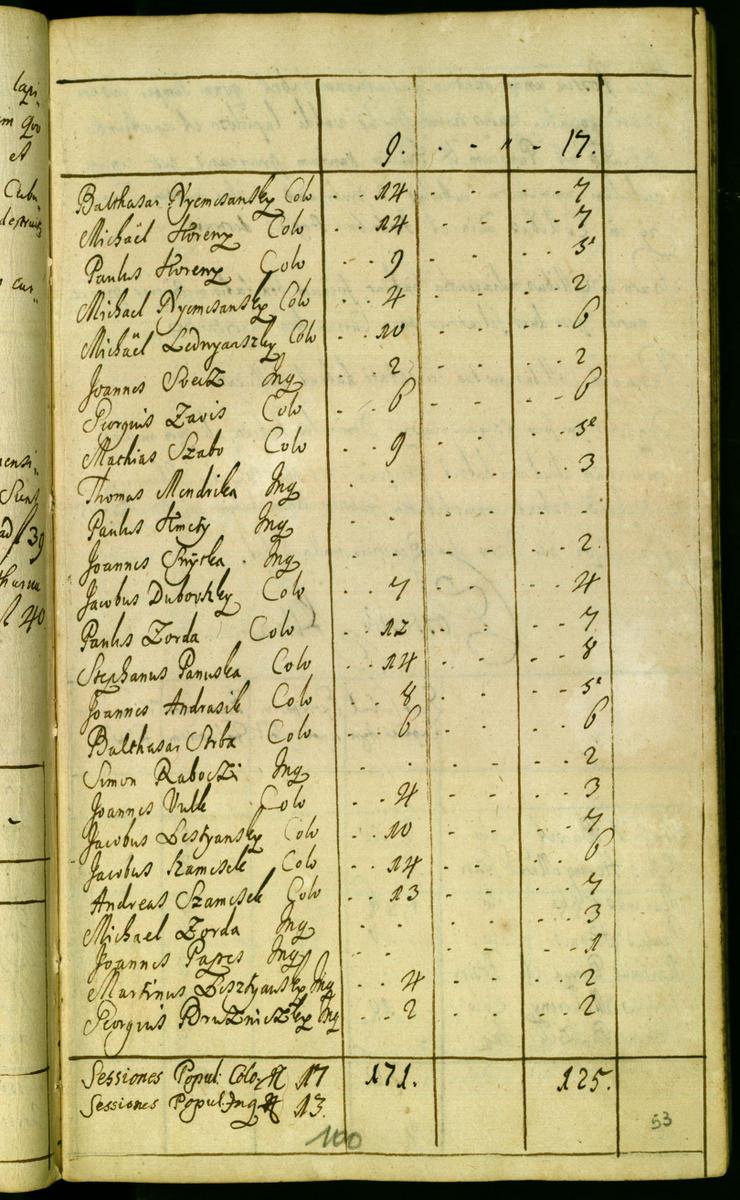 lapi,
m quo
et
Cubu,
cur,
ad f 39
40
9. . - " - 17.
Balthasar Nyemcsansky Colo . . 14 . - . - 7
Michaël Horeny Colo . . 14 - - - - 7
Paulus Horeny Colo . . 9 - - - - 5
Michael Nyemcsansky Colo . . 4 - - - - 2
Michaël Lednyanszky Colo . . 10 - - - - 6
Joannes Svecz Inq . . 2 - - - - 2
Georgius Zavis Colo . . 6 - - - - 6
Mathias Szabo Colo . . 9 - - - - 5
Thomas Mendrika Inq . . - - - - 3
Paulus Hmety Inq . . - - - - -
Joannes Inq . . - - - - 2
Jacobus Dubovszky Colo . . 7 - - - - 4
Paulus Zorda Colo . . 12 . - - - - 7
Stephanus Panuska Colo . . 14 - - - - 8
Joannes Andrasik Colo . . 8 - - - - 5
Balthasar Strba Colo . . 6 - - - - 6
Simon Raboczi Inq . . - - - - 2
Joannes Vulk Colo . . 4 - - - - 3
Jacobus Lestyansky Colo . . 10 - - - - 7
Jacobus Szamcsek Colo . . 14 - - - - 6
Andreas Szamcsek Colo . . 13 - - - - 7
Michael Zorda Inq . . - - - - 3
Joannes Papes Inq . . - - - - 1
Martinus Lesztyansky Inq . . 4 - - - - 2
Georgius Druzniczky Inq . . 2 - - - - 2
Sessiones Popul: Colo: 17 171. 125.
Sessiones Popul: Inq 13.
100
53